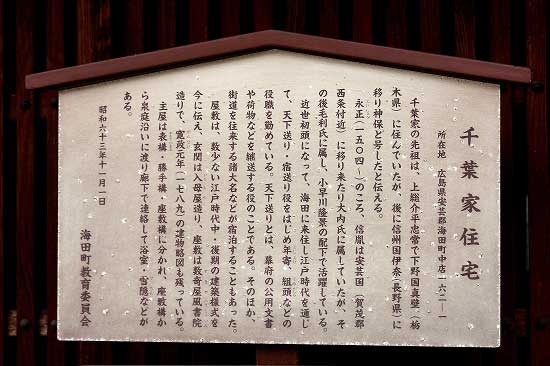 千葉家住宅
所在地 広島県安芸郡海田町中店一六二―一
千葉家の先祖は、上総介平忠常で下野国真壁(栃
木県)に住んでいたが、後に信州国伊奈(長野県)に
移り神保と号したと伝える。
永正(一五〇四~)のころ、信胤は安芸国(賀茂郡
西条付近)に移り来たり大内氏に属していたが、そ
の後毛利氏に属し、小早川隆景の配下で活躍している。
近世初頭になって、海田に来住し江戸時代を通じ
て、天下送り・宿送り役をはじめ年寄、組頭などの
役職を勤めている。天下送りとは、幕府の公用文書
や荷物などを継送する役のことである。そのほか、
街道を往来する諸大名などが宿泊することもあった。
屋敷は、数少ない江戸時代中・後期の建築様式を
今に伝え、玄関は入母屋造り、座敷は数寄屋風書院
造りで、寛政元年(一七八九)の建物略図も残っている。
主屋は表構・勝手構・座敷構に分かれ、座敷構か
ら泉庭沿いに渡り廊下で連絡して浴室・雪隠などが
ある。
昭和六十三年十一月一日
海田町教育委員会